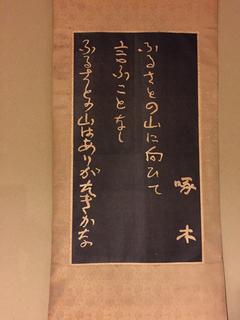 ふるさとの山に向ひて
言ふことなし
ふるさとの山はありがたきかな
啄木